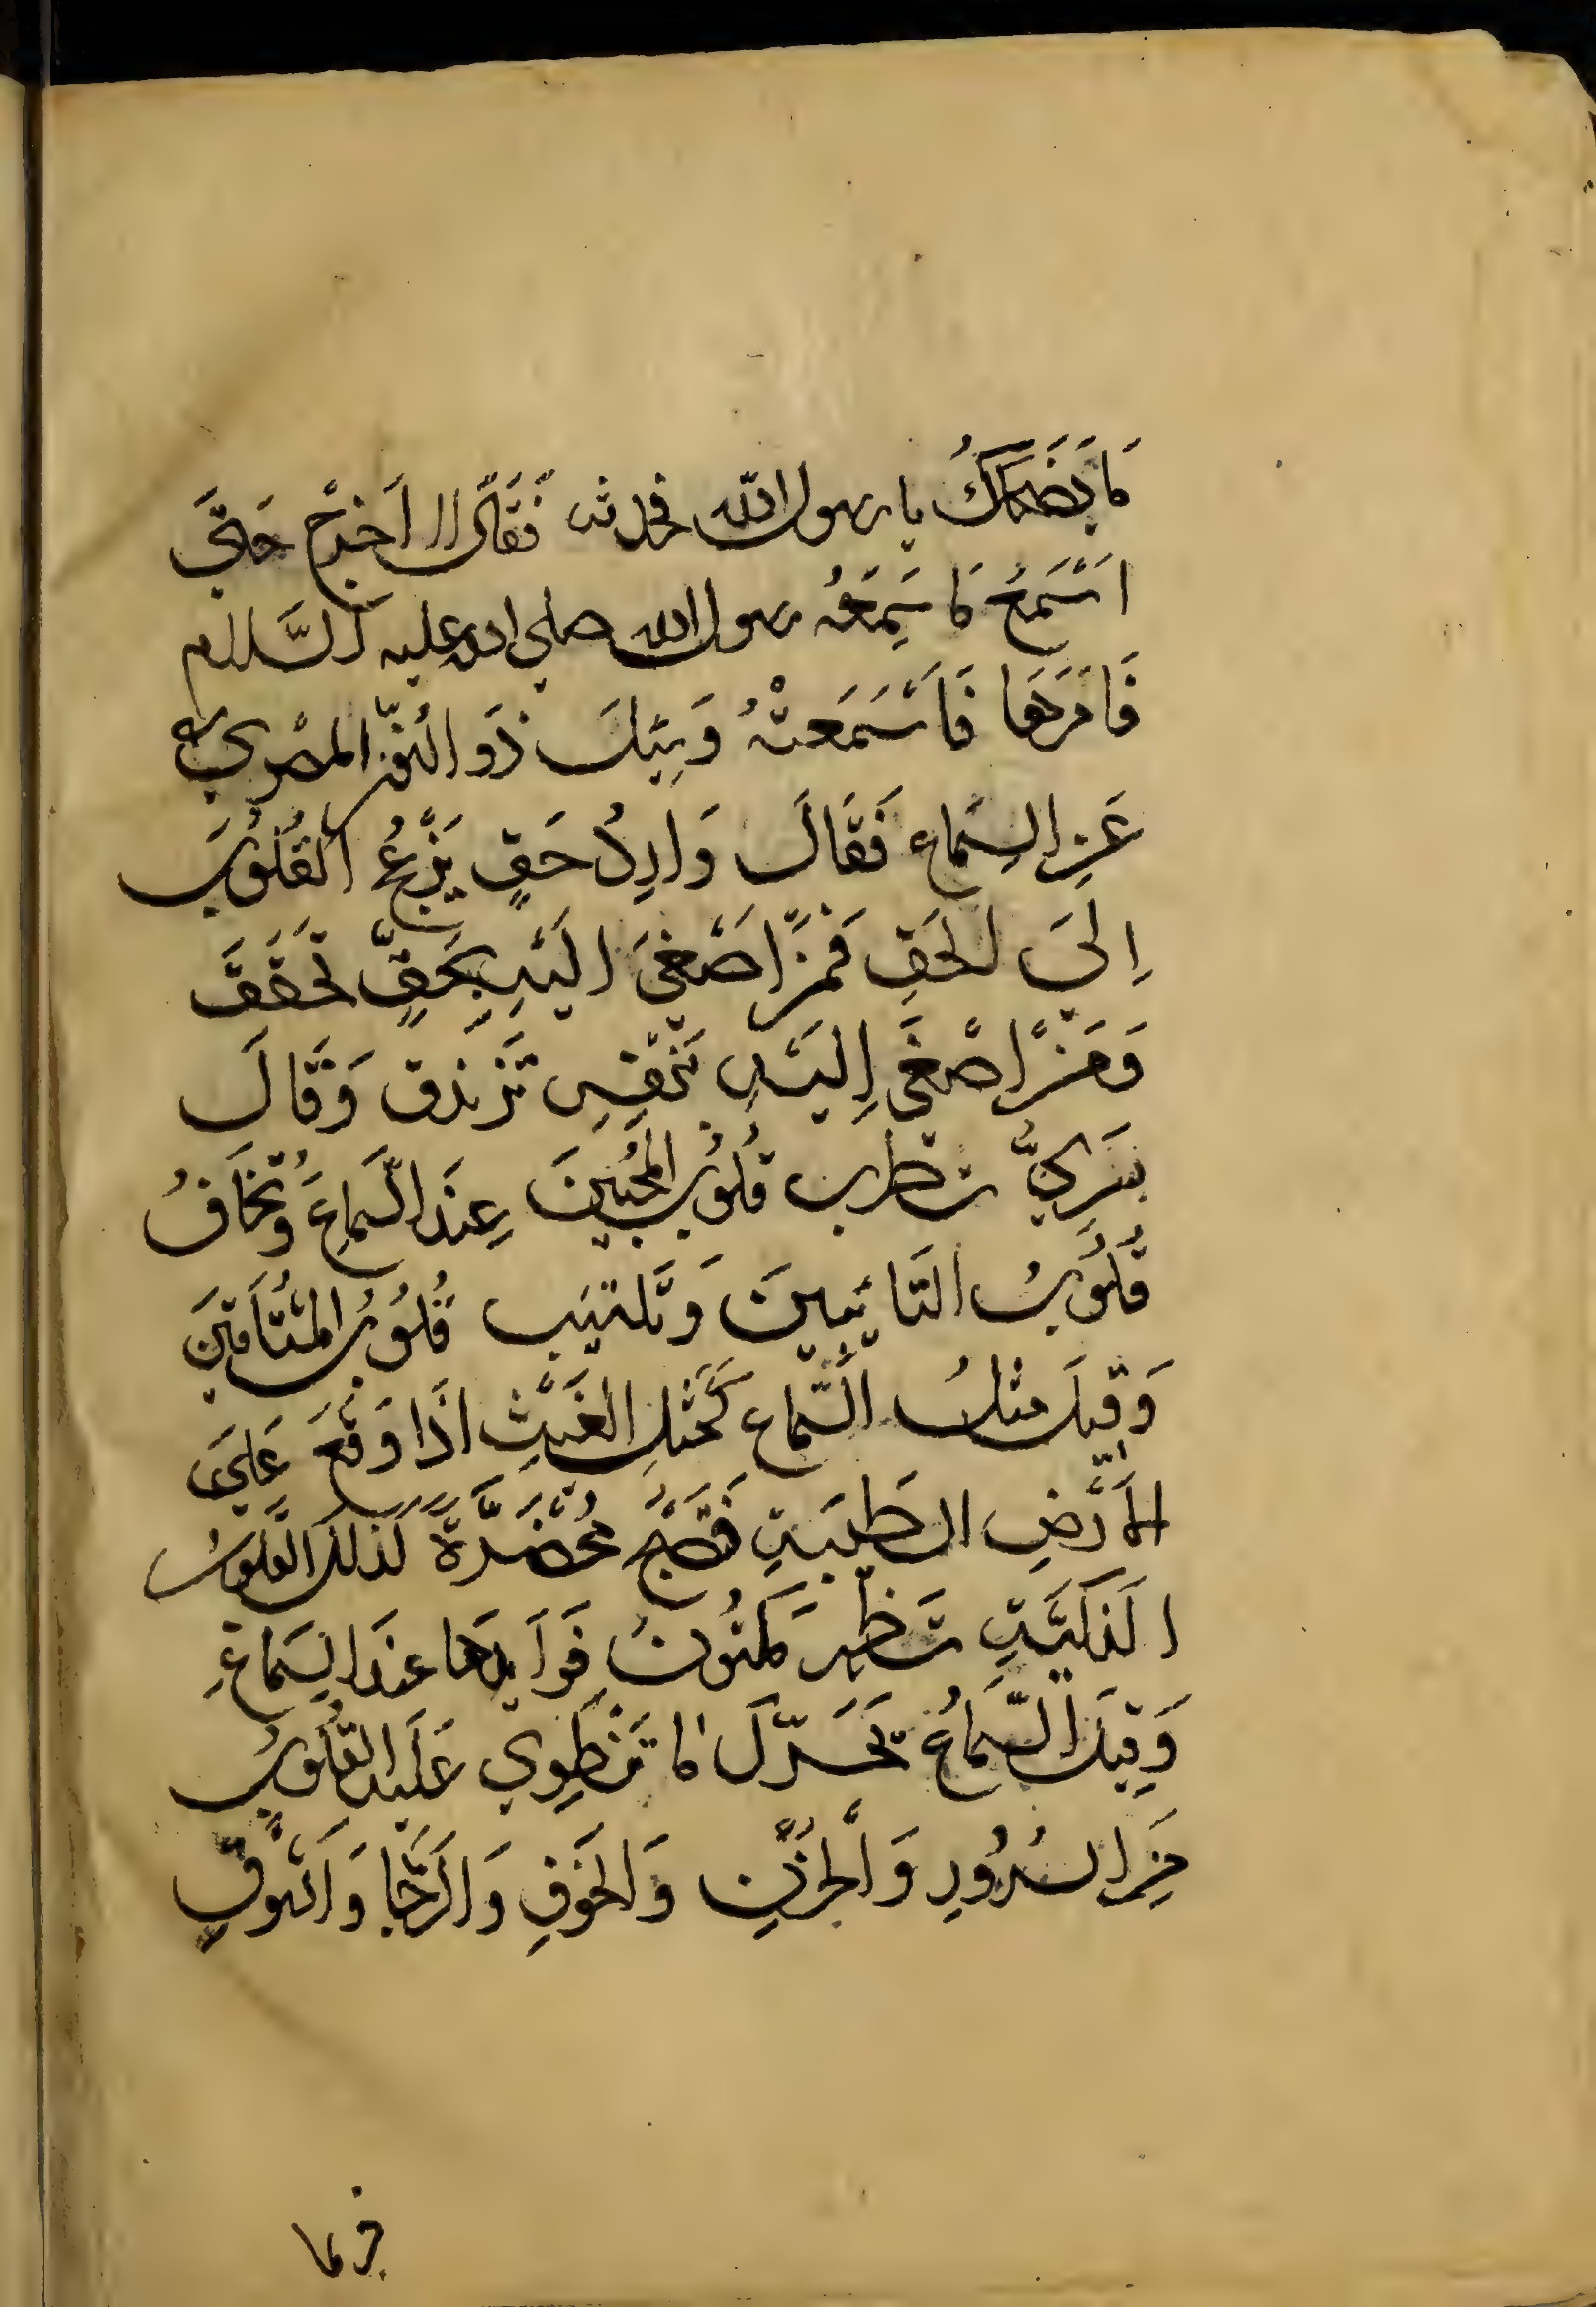 مَا يُضحِكُكَ يا رسول الله فحدثه فَقَال لا اَخرُج حَتَّى
اَسْمَعُ مَا سَمِعَهُ رسول الله صلى الله عليه السَّلام
فَاَمَرَهَا فَاَسْمَعتْهُ وَسُئِلَ ذَو النون المصْرِي
عَنِ السَّماع فَقَالَ وَارِدُ حَقٍ يُزْعِجُ القُلُوبَ
اِلىَ الحَقِ فَمنْ اَصْغىَ الَيْهِ بِحَقٍّ تحَققَ
وَمَنْ اصْغَى اِليْهِ بنَفْسٍ تَزنذق وَقَالَ
سَرِيٌّ تطرب قُلُوبُ المُحبِّينَ عِنَدَ السَّمَاعِ وَتَخَافُ
قُلُوبُ التَائِبِينَ وَتَلتهب قُلُوبُ المُشْتَاقِينَ
وَقِيلَ مثلُ السَّمَاعِ كَمَثلِ الغَيْثِ اذَا وَقَعَ عَلَى
الاَرْضِ الطَيبَةِ فَتصْبحُ مُخْضَرَّةً كَذلكَ القلوبُ
الذكيَّةِ تَظهر مَكنُونُ فَوَايدهَا عندَ السَماعِ
وَقِيلَ السَّمَاعُ يحَرّكَ مَا تَنطَوِي عَليه القُلُوبُ
مِنَ السُرُورِ وَالحُزنِ وَالخَوفِ وَالرَجَا وَالشوقِ
فربما